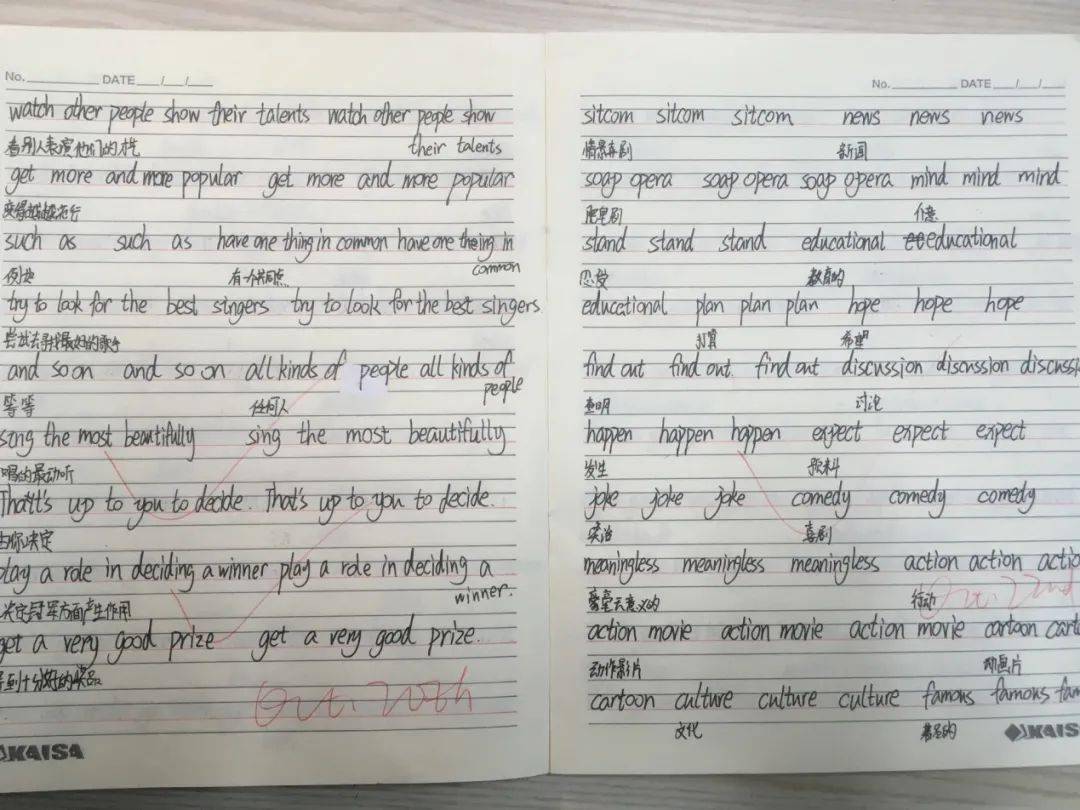 No. DATE / /
watch other people show their talents watch other people show
their talents
看别人表演他们的
get more and more popular get more and more popular
变得越越流行
such as such as have one thing in common have one theing in
common
例如 有一个共同点
try to look for the best singers try to look for the best singers
尝试去寻找最好的歌手
and so on and so on all kinds of people all kinds of
people
等等 任何人
song the most beautifully sing the most beautifully
唱的最动听
That's up to you to decide. That's up to you to decide.
由你决定
play a role in deciding a winner play a role in deciding a
winner.
决定冠军方面产生作用
get a very good prize get a very good prize.
得到十分好的奖品
Oct. 20th
KAISA
No. DATE / /
sitcom sitcom sitcom news news news
情景喜剧 新闻
soap opera soap opera soap opera mind mind mind
肥皂剧 介意
stand stand stand educational educational
忍受 教育的
educational plan plan plan hope hope hope
打算 希望
find out find out find out discussion discussion discussi
查明 讨论
happen happen happen expect expect expect
发生 预料
joke joke joke comedy comedy comedy
笑话 喜剧
meaningless meaningless meaningless action action actio
毫无意义的 行动
Oct. 22nd
action movie action movie action movie cartoon carto
动作影片 动画片
cartoon culture culture culture famous famous fam
文化 著名的
KAIS